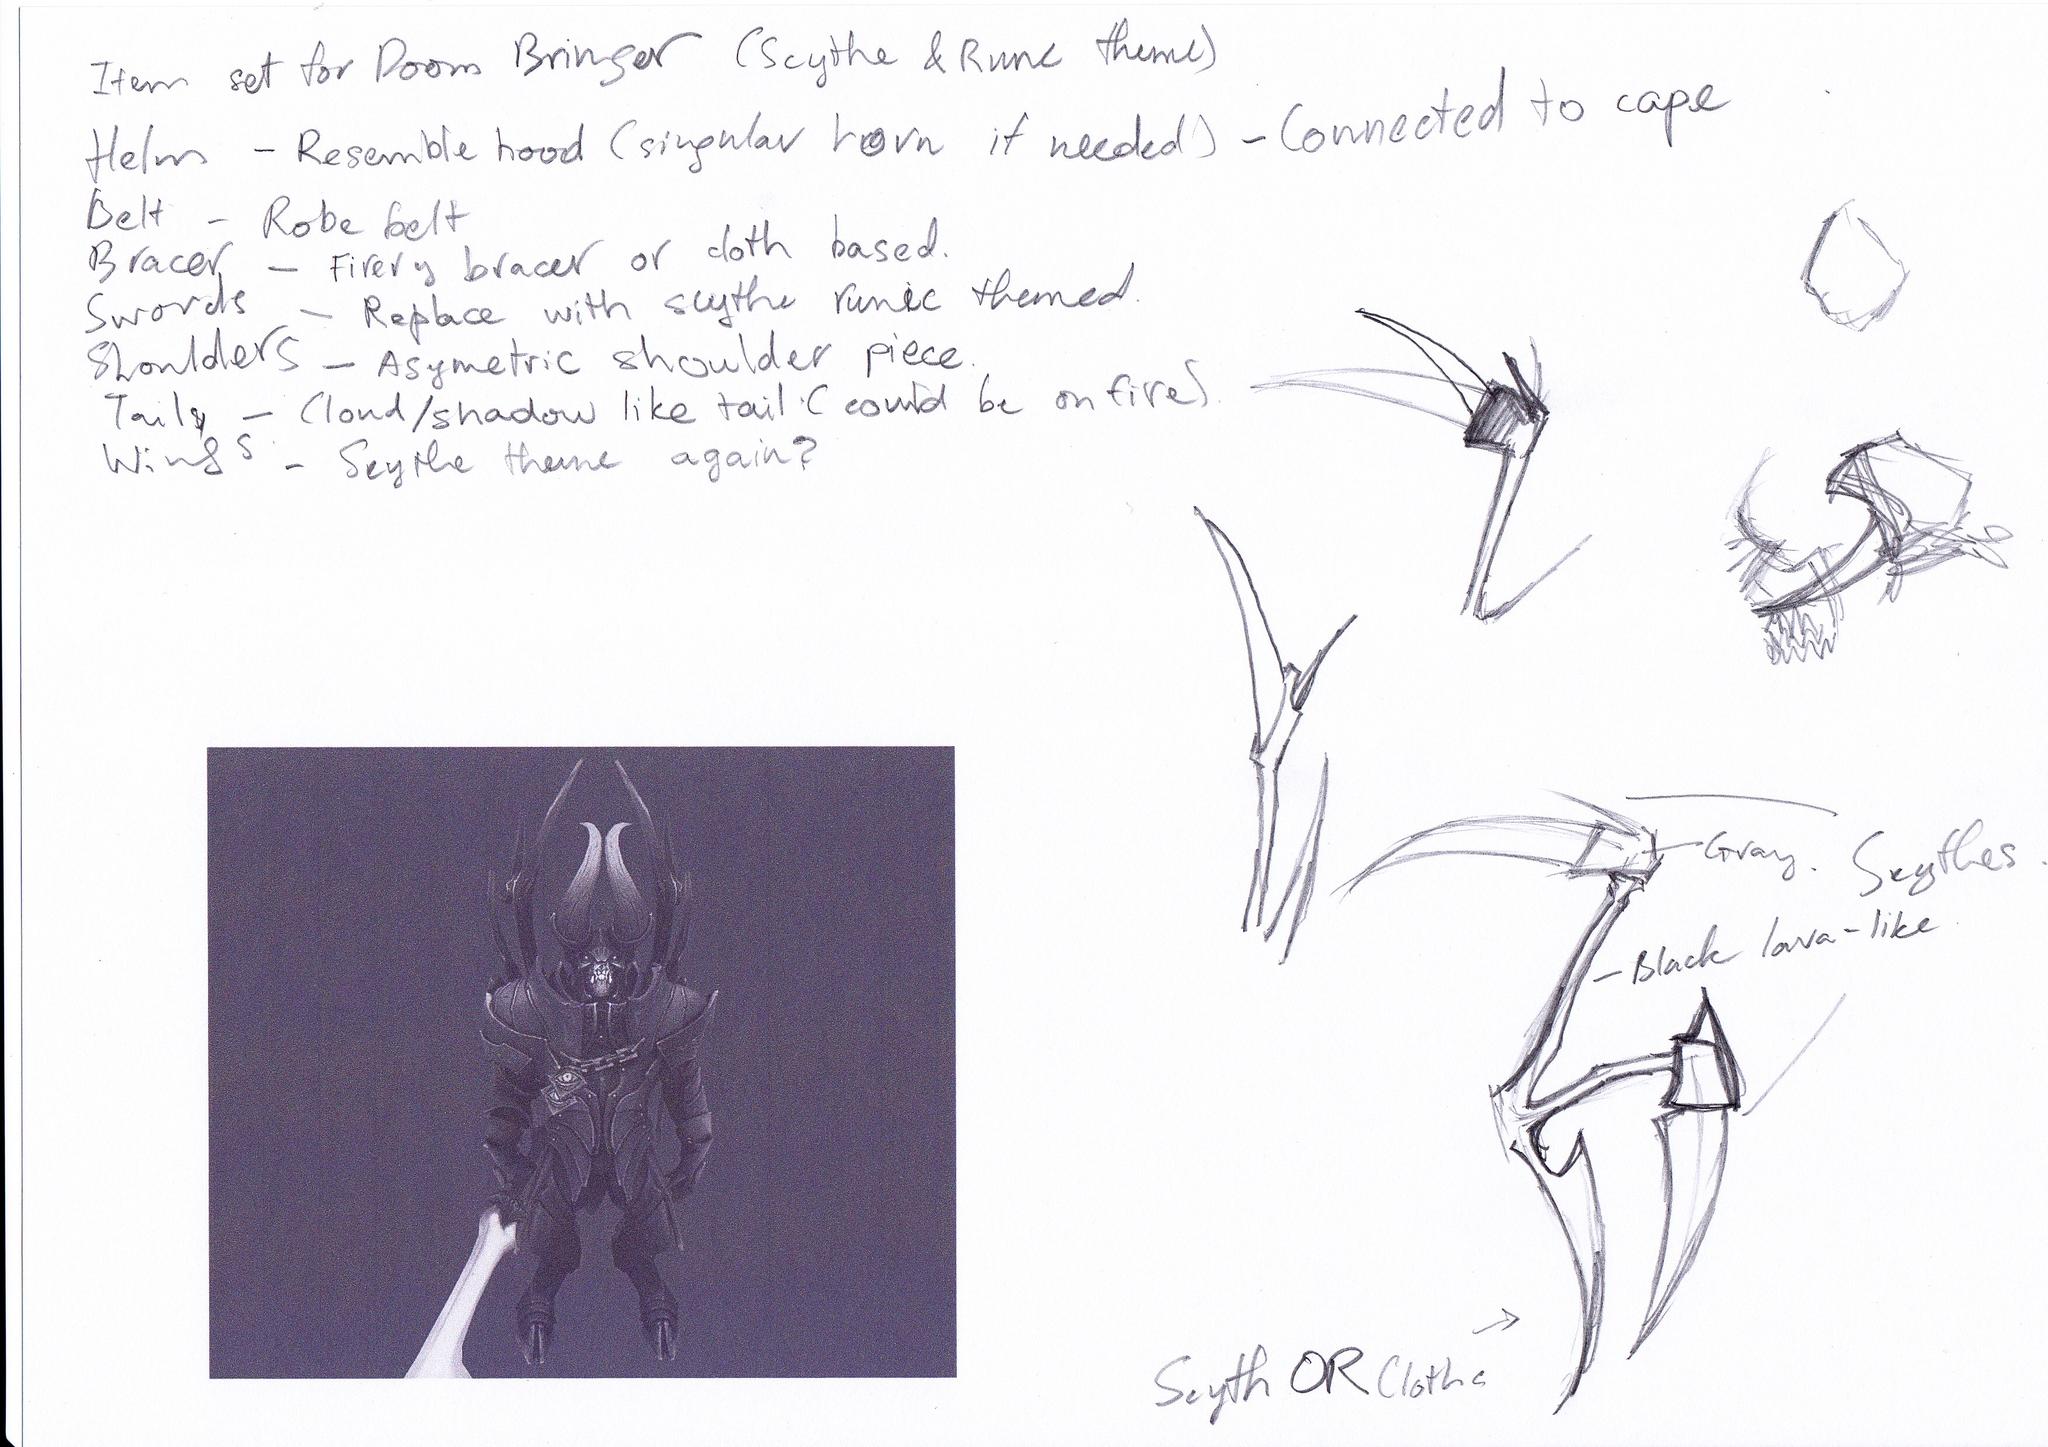 Item set for Doom Bringer (Scythe & Rune theme)
Helm - Resemble hood (singular horn if needed) - Connected to cape
Belt - Robe belt
Bracer - Firery bracer or cloth based.
Swords - Replace with scythe runic themed.
Shoulders - Asymetric shoulder piece.
Tails - Cloud/shadow like tail (could be on fire).
Wings - Scythe theme again?
- Gray. Scythes.
- Black lava-like
Scyth OR Cloths